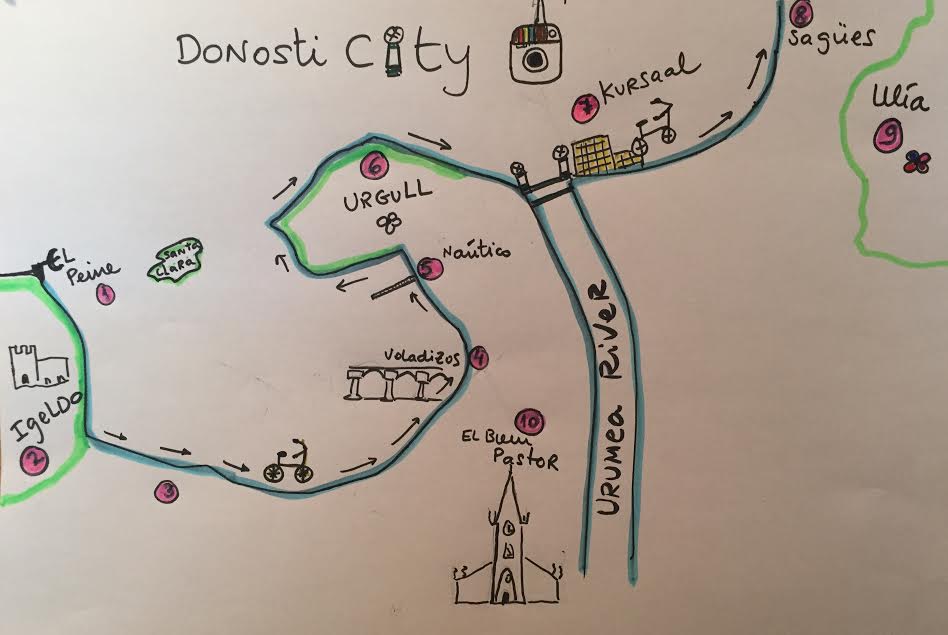 DONOSTI City
8
Sagües
7
KURSAAL
Ulía
9
6
URGULL
EL
Peine
1
SANTA
CLARA
Naútico
5
Voladizos
4
IgeLDO
2
3
10
EL Buen
PastoR
URUMEA RiVeR